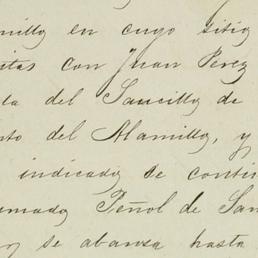 millo en cuyo sitio
itas con Juan Perez
ta del Saucillo de
nto del Alamillo, y
indicado se conti
amado Peñol de San
y se abansa hasta